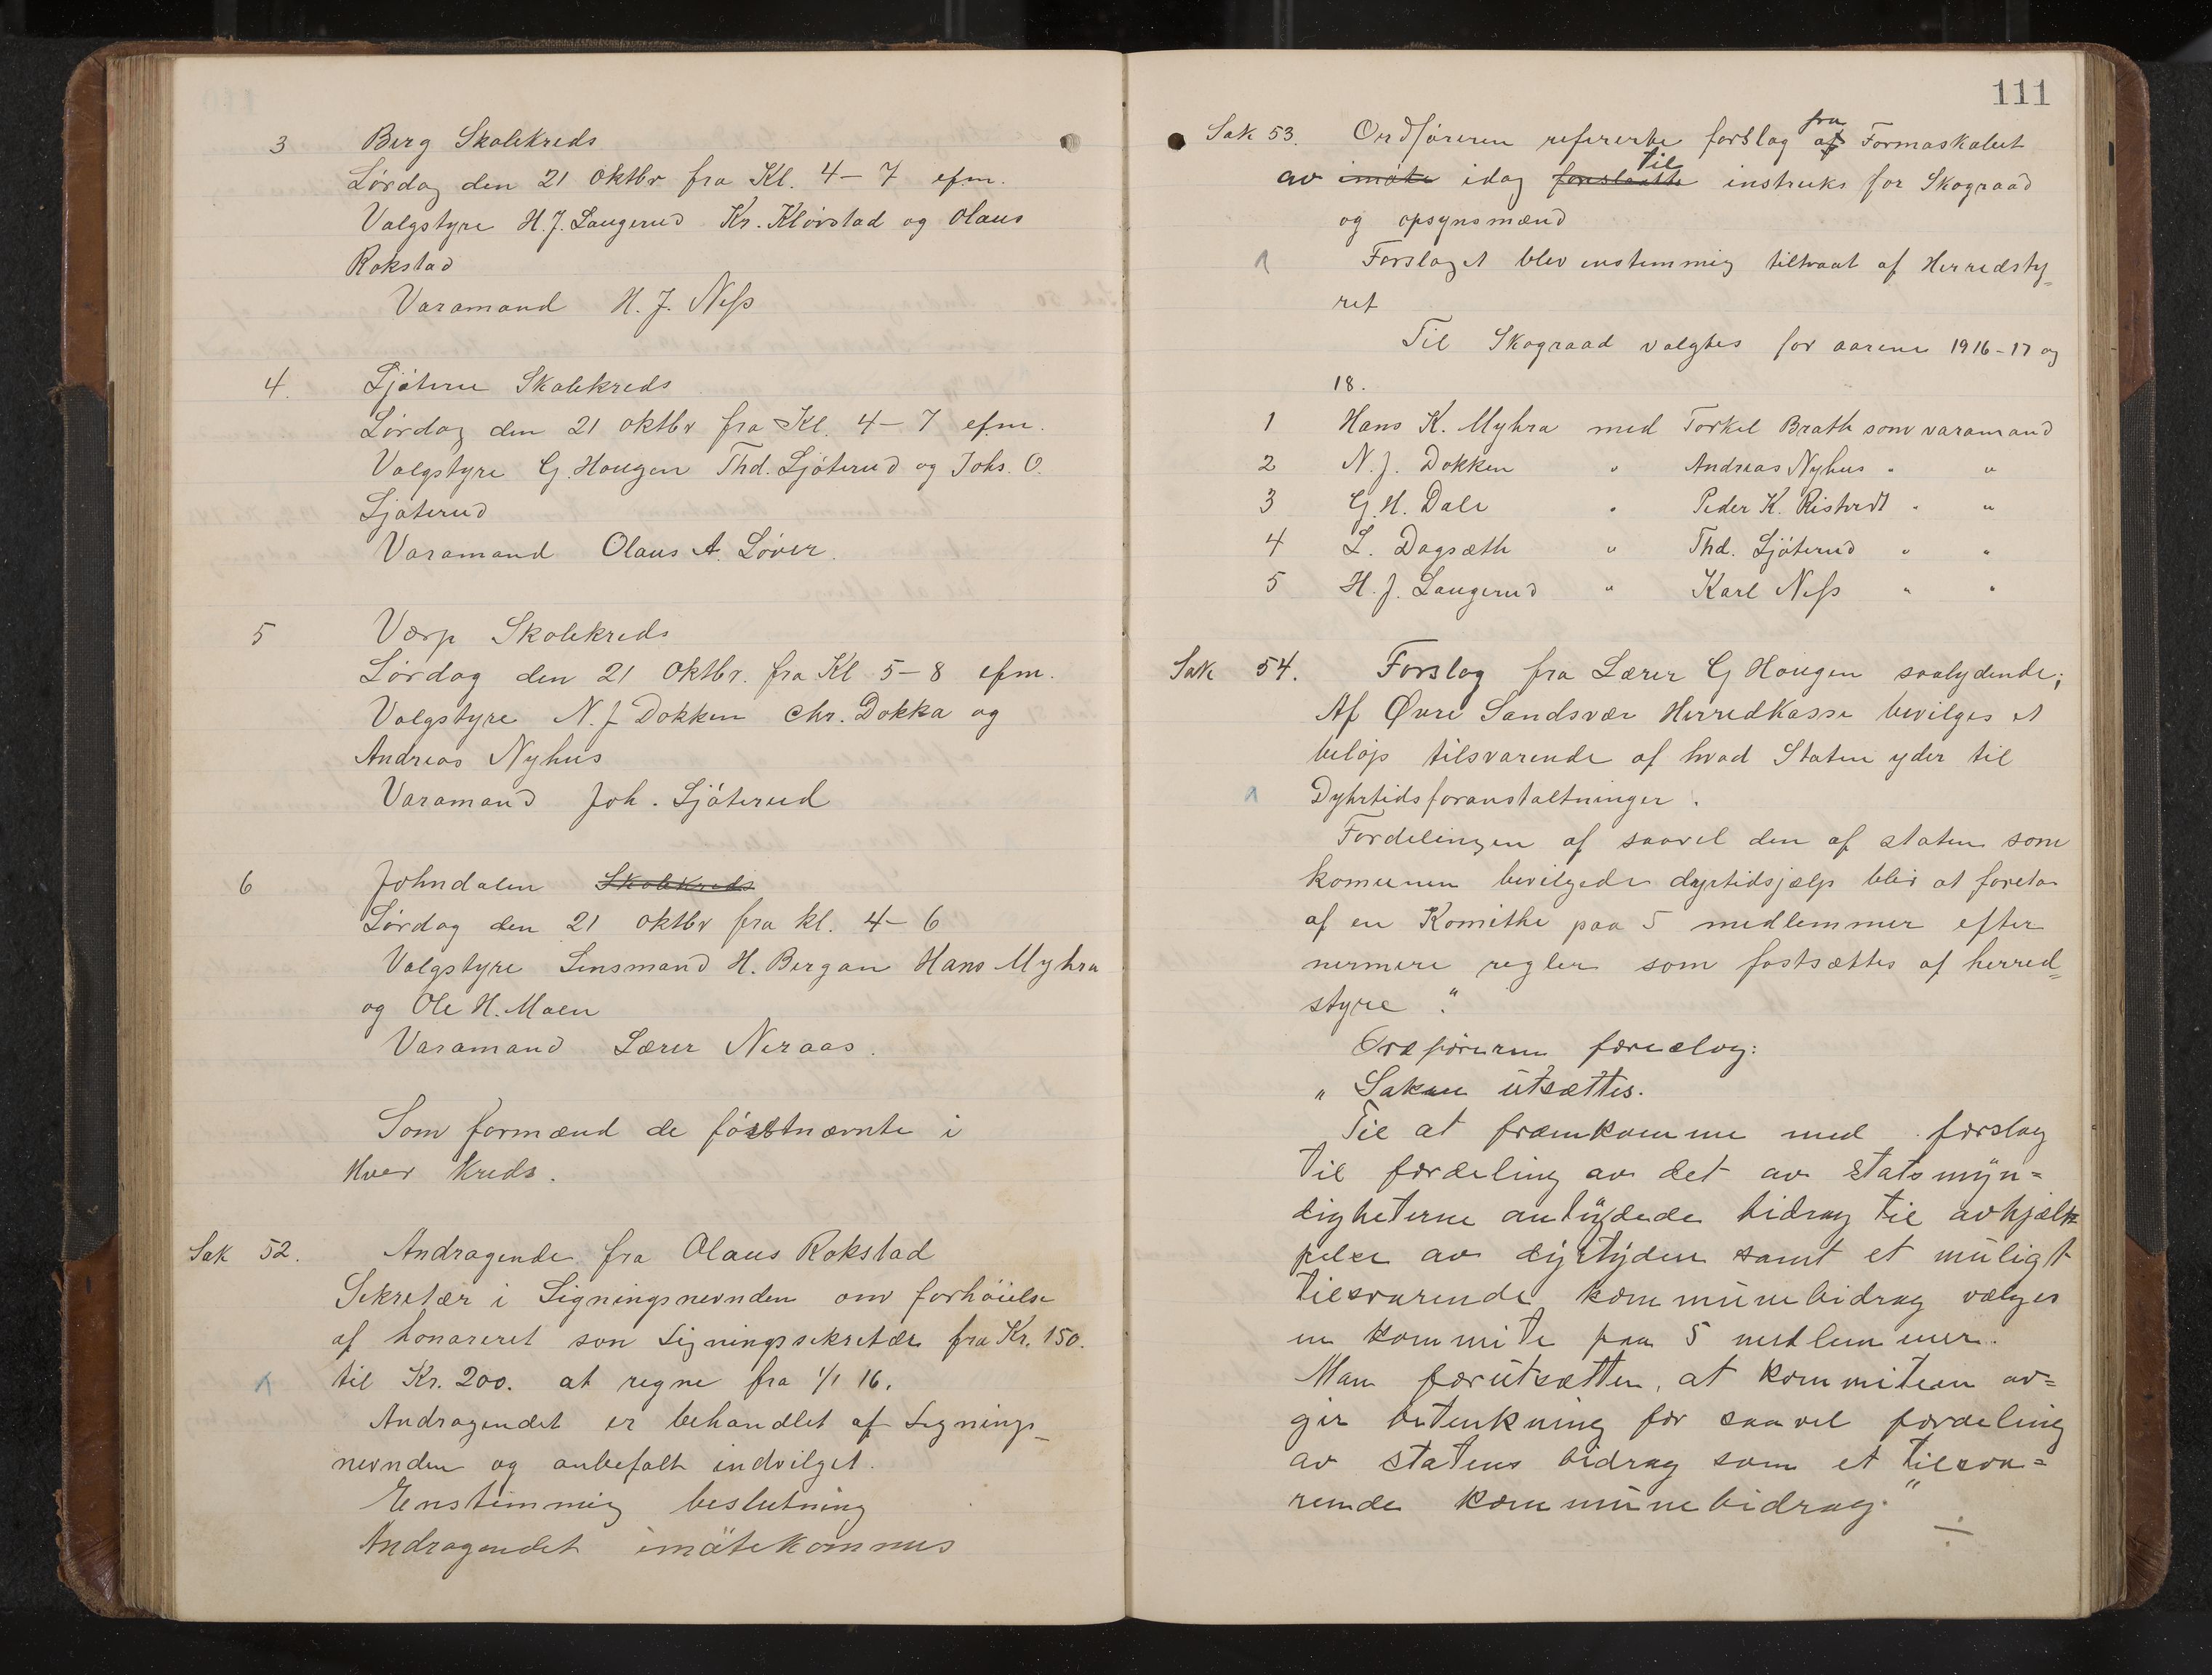 3 Berg Skolekreds
Lørdag den 21 Oktbr fra Kl. 4–7 efm.
Valgstyre H.J. Laugerud Kr. Kløvstad og Olaus
Rokstad
Varamand H. J. Ness
4. Ljøterud Skolekreds
Lørdag den 21 Oktbr fra Kl. 4–7 efm.
Valgstyre G. Hougen Thd. Ljøterud og Johs. O.
Ljøterud
Varamand Olaus A. Løver.
5 Værp Skolekreds
Lørdag den 21 Oktbr. fra Kl 5–8 efm.
Valgstyre N. J Dokken Chr. Dokka og
Andreas Nyhus
Varamand Joh. Ljøterud
6 Johndalen Skolekreds
Lørdag den 21 Oktbr fra kl. 4–6
Valgstyre Lensmand H. Bergan Hans Myhra
og Ole H. Moen
Varamand Lærer Neraas.
Som formænd de førstnævnte i
Hver Kreds.
Sak 52. Andragende fra Olaus Rokstad
Sekretær i Ligningsnevnden om forhøielse
af honoreret som Ligningssekretær fra Kr. 150.
til Kr. 200. at regne fra 1/1 16.
Andragendet er behandlet af Lignings-
nevnden og anbefalt indvilget.
Enstemmig beslutning
Andragendet imøtekommes
111
Sak 53. Ordføreren refererte forslag af fra Formaskabet
av imøte idag foreslaatte til instruks for Skograad
og opsynsmænd
Forslaget blev enstemmig tiltraat af Herredsty-
ret
Til Skograad valgtes for aarene 1916-17 og
18.
1 Hans K. Myhra med Torkel Brath som varamand
2 N. J. Dokken " Andreas Nyhus " "
3 G. H. Dale " Peder K. Ristvedt " "
4 L. Dagsæth " Thd. Ljøterud " "
5 H. J. Laugerud " Karl Ness " "
Sak 54. Forslag fra Lærer G Hougen saalydende;
Af Øvre Sandsvær Herredkasse bevilges et
beløp tilsvarende af hvad Staten yder til
Dyhrtidsforanstaltninger.
Fordelingen af saavel den af staten som
komunen bevilgede dyrtidsjælp blir at foreta
af en Komithe paa 5 medlemmer efter
nermere regler som fastsættes af herred=
styre."
Ordføreren foreslog:
" Saken utsættes.
Til at fremkomme med forslag
til fordeling av det av statsmyn=
digheterne antydede bidrag til avhjæl=
pelse av dyrtyden samt et muligt
tilsvarende kommunebidrag vælges
en kommite paa 5 medlemmer.
Man forutsætter, at kommiteen av=
gir betenkning for saavel fordeling
av statens bidrag som et tilsva=
rende kommunebidrag."